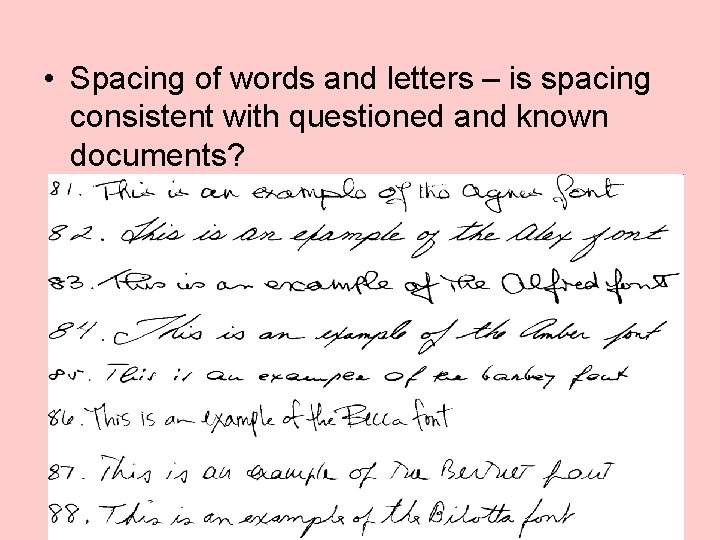 • Spacing of words and letters – is spacing
consistent with questioned and known
documents?
81. This is an example of the Agnes font
82. This is an example of the Alex font
83. This is an example of the Alfred font
84. This is an example of the Amber font
85. This is an example of the font
86. This is an example of the Becca font
87. This is an example of the font
88. This is an example of the Bilotta font